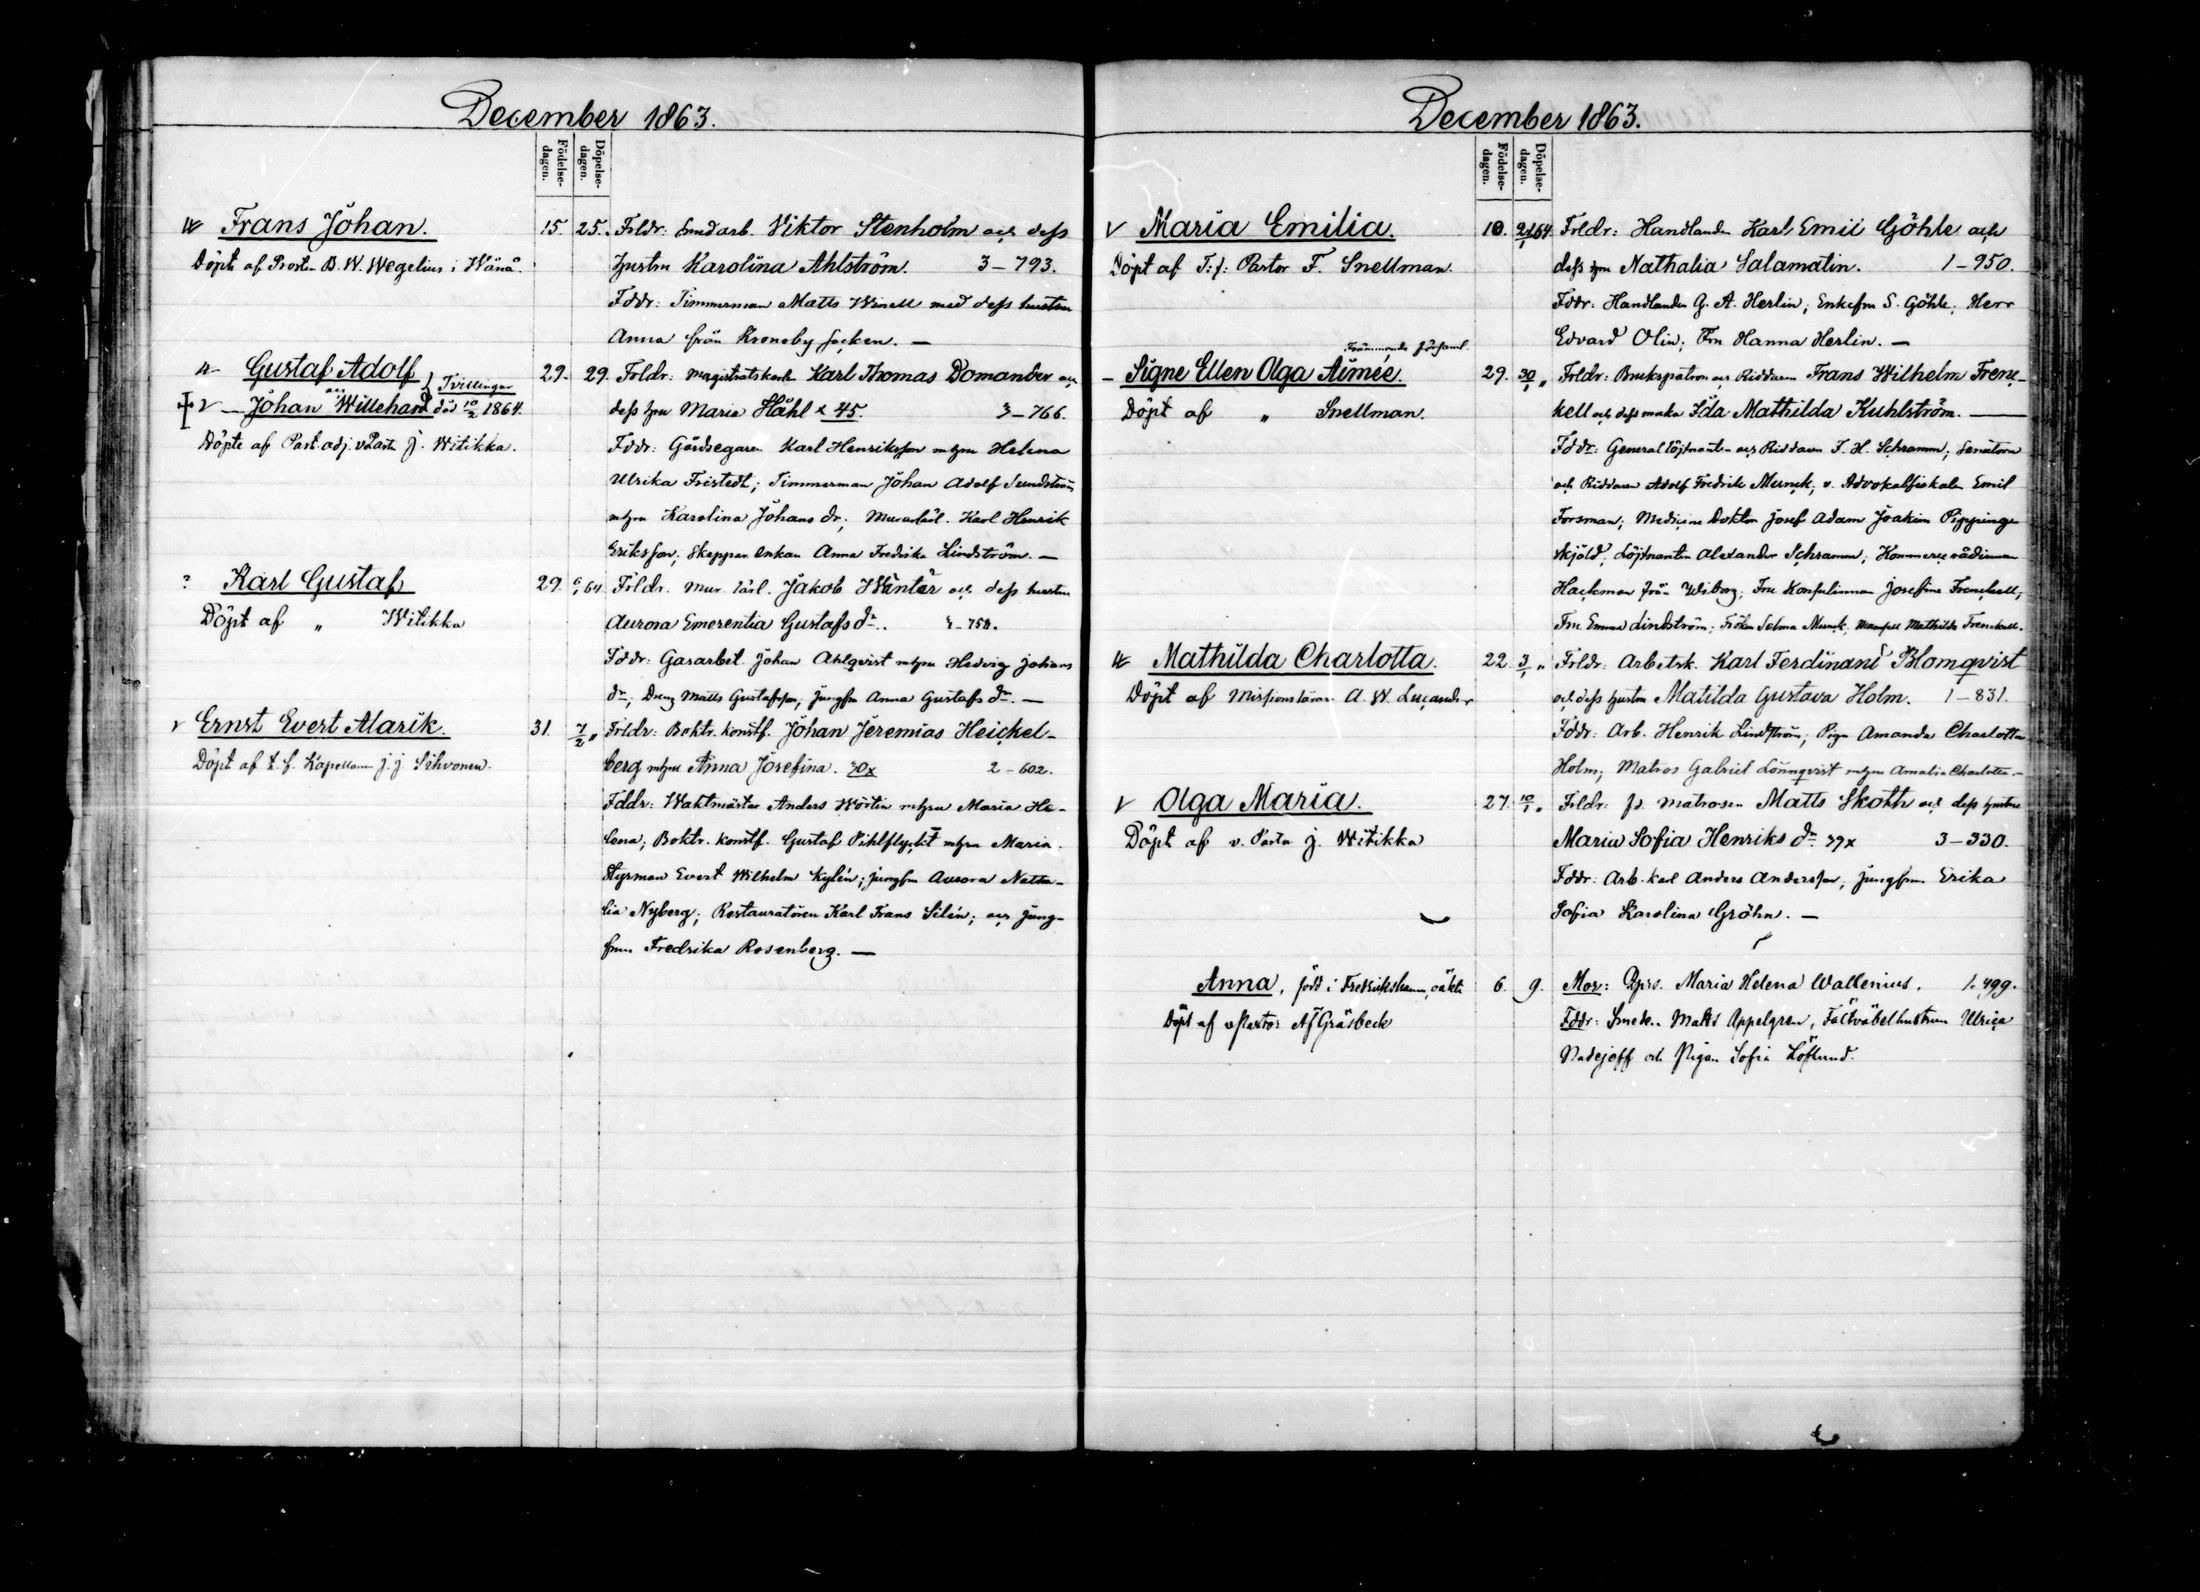 December 1863.
Födelse-
dagen.
Döpelse-
dagen.
Frans Johan. 15. 25. Frldr: Smedarb. Viktor Stenholm och dess
Döpt af Prosten B. W. Wegelius i Wånå. hustru Karolina Ahlström. 3-793.
Fddr: Timmerman Matts Winell med dess hustru
Anna från Kroneby socken. —
Gustaf Adolf 29. 29. Frldr: Magistratskarln Karl Thomas Domander och
och Tvillingar
Johan Willehard död 10/2 1864. dess hru Maria Håhl x 45. 3-766.
Döpte af Past. adj. v Past. J. Witikka. Fddr: Gårdsegaren Karl Henriksson m hru Helena
Ulrika Fristedt; Timmerman Johan Adolf Sundström
m hru Karolina Johans dr; Murarlärl. Karl Henrik
Eriksson; Skeppar enkan Anna Fredrika Lindström. —
? Karl Gustaf 29. 6/1 64 Frldr. Mur lärl. Jakob Wäntär och dess hustru
Döpt af „ Witikka Aurora Emerentia Gustafs dr. 758.
Fddr: Gasarbet. Johan Ahlqvist m hru Hedvig Johans
dr; Dreng Matts Gustafsson, Jungfru Anna Gustafs dr. —
v Ernst Evert Alarik. 31. 7/2 „ Frldr: Boktr. konstf. Johan Jeremias Heickel-
Döpt af t. f. Kapellanen J. J. Sihvonen. berg m hru Anna Josefina. 30x 2-602.
Fddr: Waktmästar Anders Wörtin m hru Maria He-
lena; Boktr. konstf. Gustaf Pihlflyckt m hru Maria.
Styrman Evert Wilhelm Kylén; jungfru Aurora Natha-
lia Nyberg; Restauratören Karl Frans Silén; och jung-
frun Fredrika Rosenberg. —
December 1863.
Födelse-
dagen.
Döpelse-
dagen.
v Maria Emilia. 10. 2/1 64 Frldr: Handlanden Karl Emil Göhle och
Döpt af T: f: Pastor F. Snellman. dess hru Nathalia Salamatin. 1-950.
Fddr: Handlanden G. A. Herlin; Enkefru S. Göhle; Herr
Edvard Olin; Fru Hanna Herlin. —
Främmande församl.
– Signe Ellen Olga Aimée. 29. 30/1 „ Frldr: Brukspatron och Riddaren Frans Wilhelm Frenc-
Döpt af „ Snellman. kell och dess maka Ida Mathilda Kuhlström. —
Fddr: Generallöjtnanten och Riddaren F. H. Schramm; Senatorn
och Riddaren Adolf Fredrik Munck; v. Advokatfiskalen Emil
Forsman; Medicine Doktor Josef Adam Joakim Pippinge-
skjöld; Löjtnanten Alexander Schramm; Kommerce rådinnan
Hackman från Wiborg; Fru Konsulinnan Josefine Frenckell;
Fru Emma Lindström; Fröken Selma Munck, Mamsell Mathilda Frenckell.
Mathilda Charlotta. 22. 3/1 „ Frldr: Arbetsk. Karl Ferdinand Blomqvist
Döpt af Missionslärare A. W. Lucander och dess hustru Matilda Gustava Holm. 1-831.
Fddr: Arb. Henrik Lindström; Piga Amanda Charlotta
Holm; Matros Gabriel Lönnqvist m hru Amalia Charlotta. —
v Olga Maria. 27. 10/1 „ Frldr: fd. matrosen Matts Skotth och dess hustru
Döpt af v. Pastor J. Witikka Maria Sofia Henriks dr 39x 3-330.
Fddr: Arb. karl Anders Andersson, jungfrun Erika
Sofia Karolina Gröhn. —
Anna, född i Fredrikshamn, oäkta 6. 9. Mor: Maria Helena Wallenius. 1.499.
Döpt af vPastor Af Gråsbeck Fddr: Smeden Matts Appelgren, Fältväbelhustrun Ulrica
Nadejoff och Pigan Sofia Löflund.